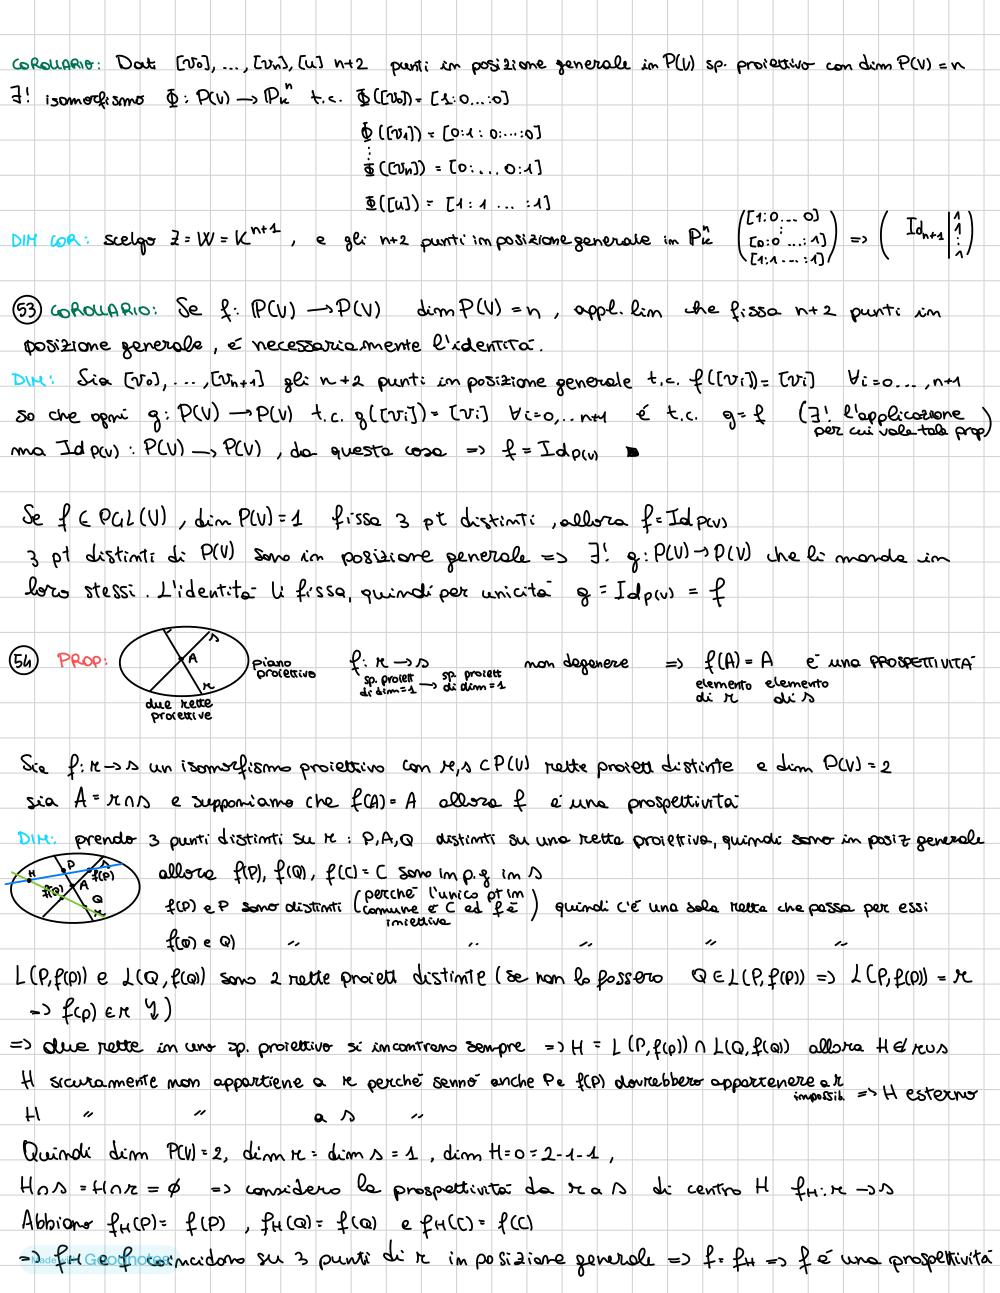 COROLLARIO: Dati [v₀], ..., [vₙ], [u] n+2 punti in posizione generale in P(V) sp. proiettivo con dim P(V) = n
∃! isomorfismo Φ: P(V) → Pₖⁿ t.c. Φ([v₀]) = [1:0...:0]
Φ([v₁]) = [0:1:0:...:0]
⋮
Φ([vₙ]) = [0:...0:1]
Φ([u]) = [1:1...:1]
DIM COR: scelgo Z = W = Kⁿ⁺¹, e gli n+2 punti in posizione generale in Pₖⁿ ([1:0...0] ⋮ [0:0...:1] [1:1...:1]) => (Idₙ₊₁ | 1 1 ⋮ 1)
53 COROLLARIO: Se f: P(V) → P(V) dim P(V) = n, appl. lin che fissa n+2 punti in
posizione generale, é necessariamente l'identità.
DIM: Sia [v₀], ..., [vₙ₊₁] gli n+2 punti in posizione generale t.c. f([vᵢ]) = [vᵢ] ∀i=0...,n+1
so che ogni g: P(V) → P(V) t.c. g([vᵢ]) = [vᵢ] ∀i=0,..n+1 é t.c. g = f (∃! l'applicazione
per cui vale tale prop)
ma Id P(V) : P(V) → P(V), da questa cosa => f = Id P(V)
Se f ∈ PGL(V), dim P(V) = 1 fissa 3 pt distinti, allora f = Id P(V)
3 pt distinti di P(V) sono in posizione generale => ∃! g: P(V) → P(V) che li manda in
loro stessi. L'identità li fissa, quindi per unicità g = Id P(V) = f
54 PROP:
s
A
r
piano
proiettivo
due rette
proiettive
f: r → s non degenere => f(A) = A é una PROSPETTIVITÀ
sp. proiett di dim=1 → sp. proiett di dim=1
elemento di r elemento di s
Sia f: r → s un isomorfismo proiettivo con r,s ⊂ P(V) rette proiett distinte e dim P(V) = 2
sia A = r∩s e supponiamo che f(A) = A allora f é una prospettività
DIM: prendo 3 punti distinti su r: P,A,Q distinti su una retta proiettiva, quindi sono in posiz generale
H P s f(P) f(Q) A Q r
allora f(P), f(Q), f(C) = C sono in p.g in s
f(P) e P sono distinti (perché l'unico pt in comune é C ed f é iniettiva) quindi c'é una sola retta che passa per essi
f(Q) e Q) " " " " "
L(P,f(P)) e L(Q,f(Q)) sono 2 rette proiett distinte (se non lo fossero Q ∈ L(P,f(P)) => L(P,f(P)) = r
=> f(P) ∈ r ↯)
=> due rette in uno sp. proiettivo si incontrano sempre => H = L(P,f(P)) ∩ L(Q,f(Q)) allora H ∉ r∪s
H sicuramente non appartiene a r perché sennó anche P e f(P) dovrebbero appartenere a r
impossib. => H esterno
H " " a s "
Quindi dim P(V) = 2, dim r = dim s = 1, dim H = 0 = 2-1-1,
H∩s = H∩r = ∅ => considero la prospettività da r a s di centro H f_H: r → s
Abbiano f_H(P) = f(P), f_H(Q) = f(Q) e f_H(C) = f(C)
=> f_H e f coincidono su 3 punti di r in posizione generale => f = f_H => f é una prospettività
Made with Goodnotes